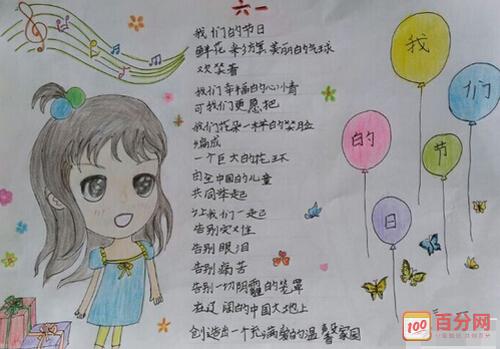 六一
我们的节日
鲜花 彩灯 美丽的气球
欢笑着
我们幸福的心情
可我们更愿把
我们花朵一样的笑脸
编成
一个巨大的花环
由全中国的儿童
共同举起
让我们一起
告别灾难
告别眼泪
告别痛苦
告别一切阴霾的笼罩
在辽阔的中国大地上
创造出一个充满爱的温馨家园
我
们
的
节
日
100
百分网